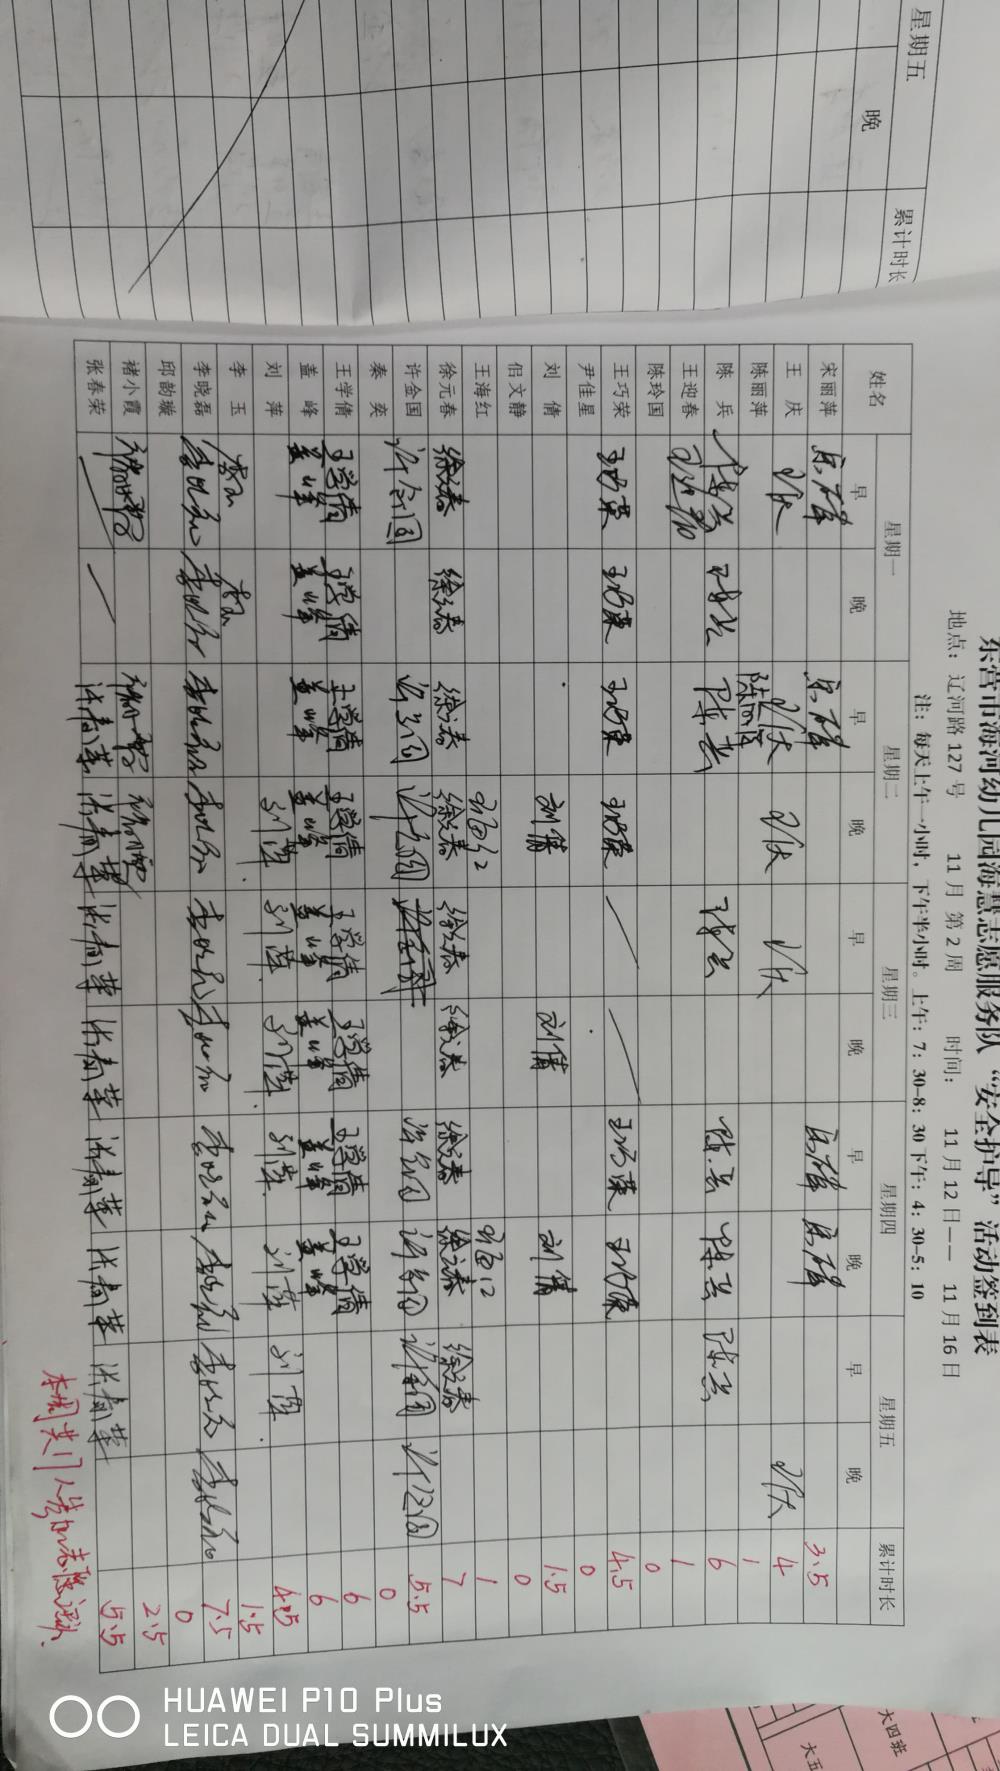 星期五
晚
累计时长
东营市海河幼儿园海慧志愿服务队“安全护导”活动签到表
地点：辽河路 127 号 11 月 第 2 周 时间： 11 月 12 日—— 11 月 16 日
注：每天上午一小时，下午半小时。上午：7：30-8：30 下午：4：30-5：10
姓名 星期一 星期二 星期三 星期四 星期五 累计时长
早 晚 早 晚 早 晚 早 晚 早 晚
宋丽萍 3.5
王 庆 4
陈丽萍 陈丽萍 1
陈 兵 陈兵 陈兵 陈兵 陈兵 陈兵 陈兵 陈兵 6
王迎春 王迎春 1
陈玲国 0
王巧荣 王巧荣 王巧荣 王巧荣 王巧荣 王巧荣 王巧荣 4.5
尹佳星 0
刘 倩 刘倩 刘倩 刘倩 1.5
侣文静 0
王海红 1
徐元春 徐元春 徐元春 徐元春 徐元春 徐元春 徐元春 徐元春 徐元春 徐元春 7
许金国 许金国 许金国 许金国 许金国 许金国 许金国 许金国 许金国 5.5
秦 奕 0
王学倩 王学倩 王学倩 王学倩 王学倩 王学倩 王学倩 王学倩 王学倩 6
盖 峰 盖峰 盖峰 盖峰 盖峰 盖峰 盖峰 盖峰 盖峰 6
刘 萍 刘萍 刘萍 刘萍 刘萍 刘萍 刘萍
李 玉 李玉 李玉 1.5
李晓磊 李晓磊 李晓磊 李晓磊 李晓磊 李晓磊 李晓磊 李晓磊 李晓磊 李晓磊 李晓磊 7.5
邱韵璇 0
褚小霞 2.5
张春荣 张春荣 张春荣 张春荣 张春荣 张春荣 张春荣 张春荣 5.5
HUAWEI P10 Plus
LEICA DUAL SUMMILUX
大四班
大五